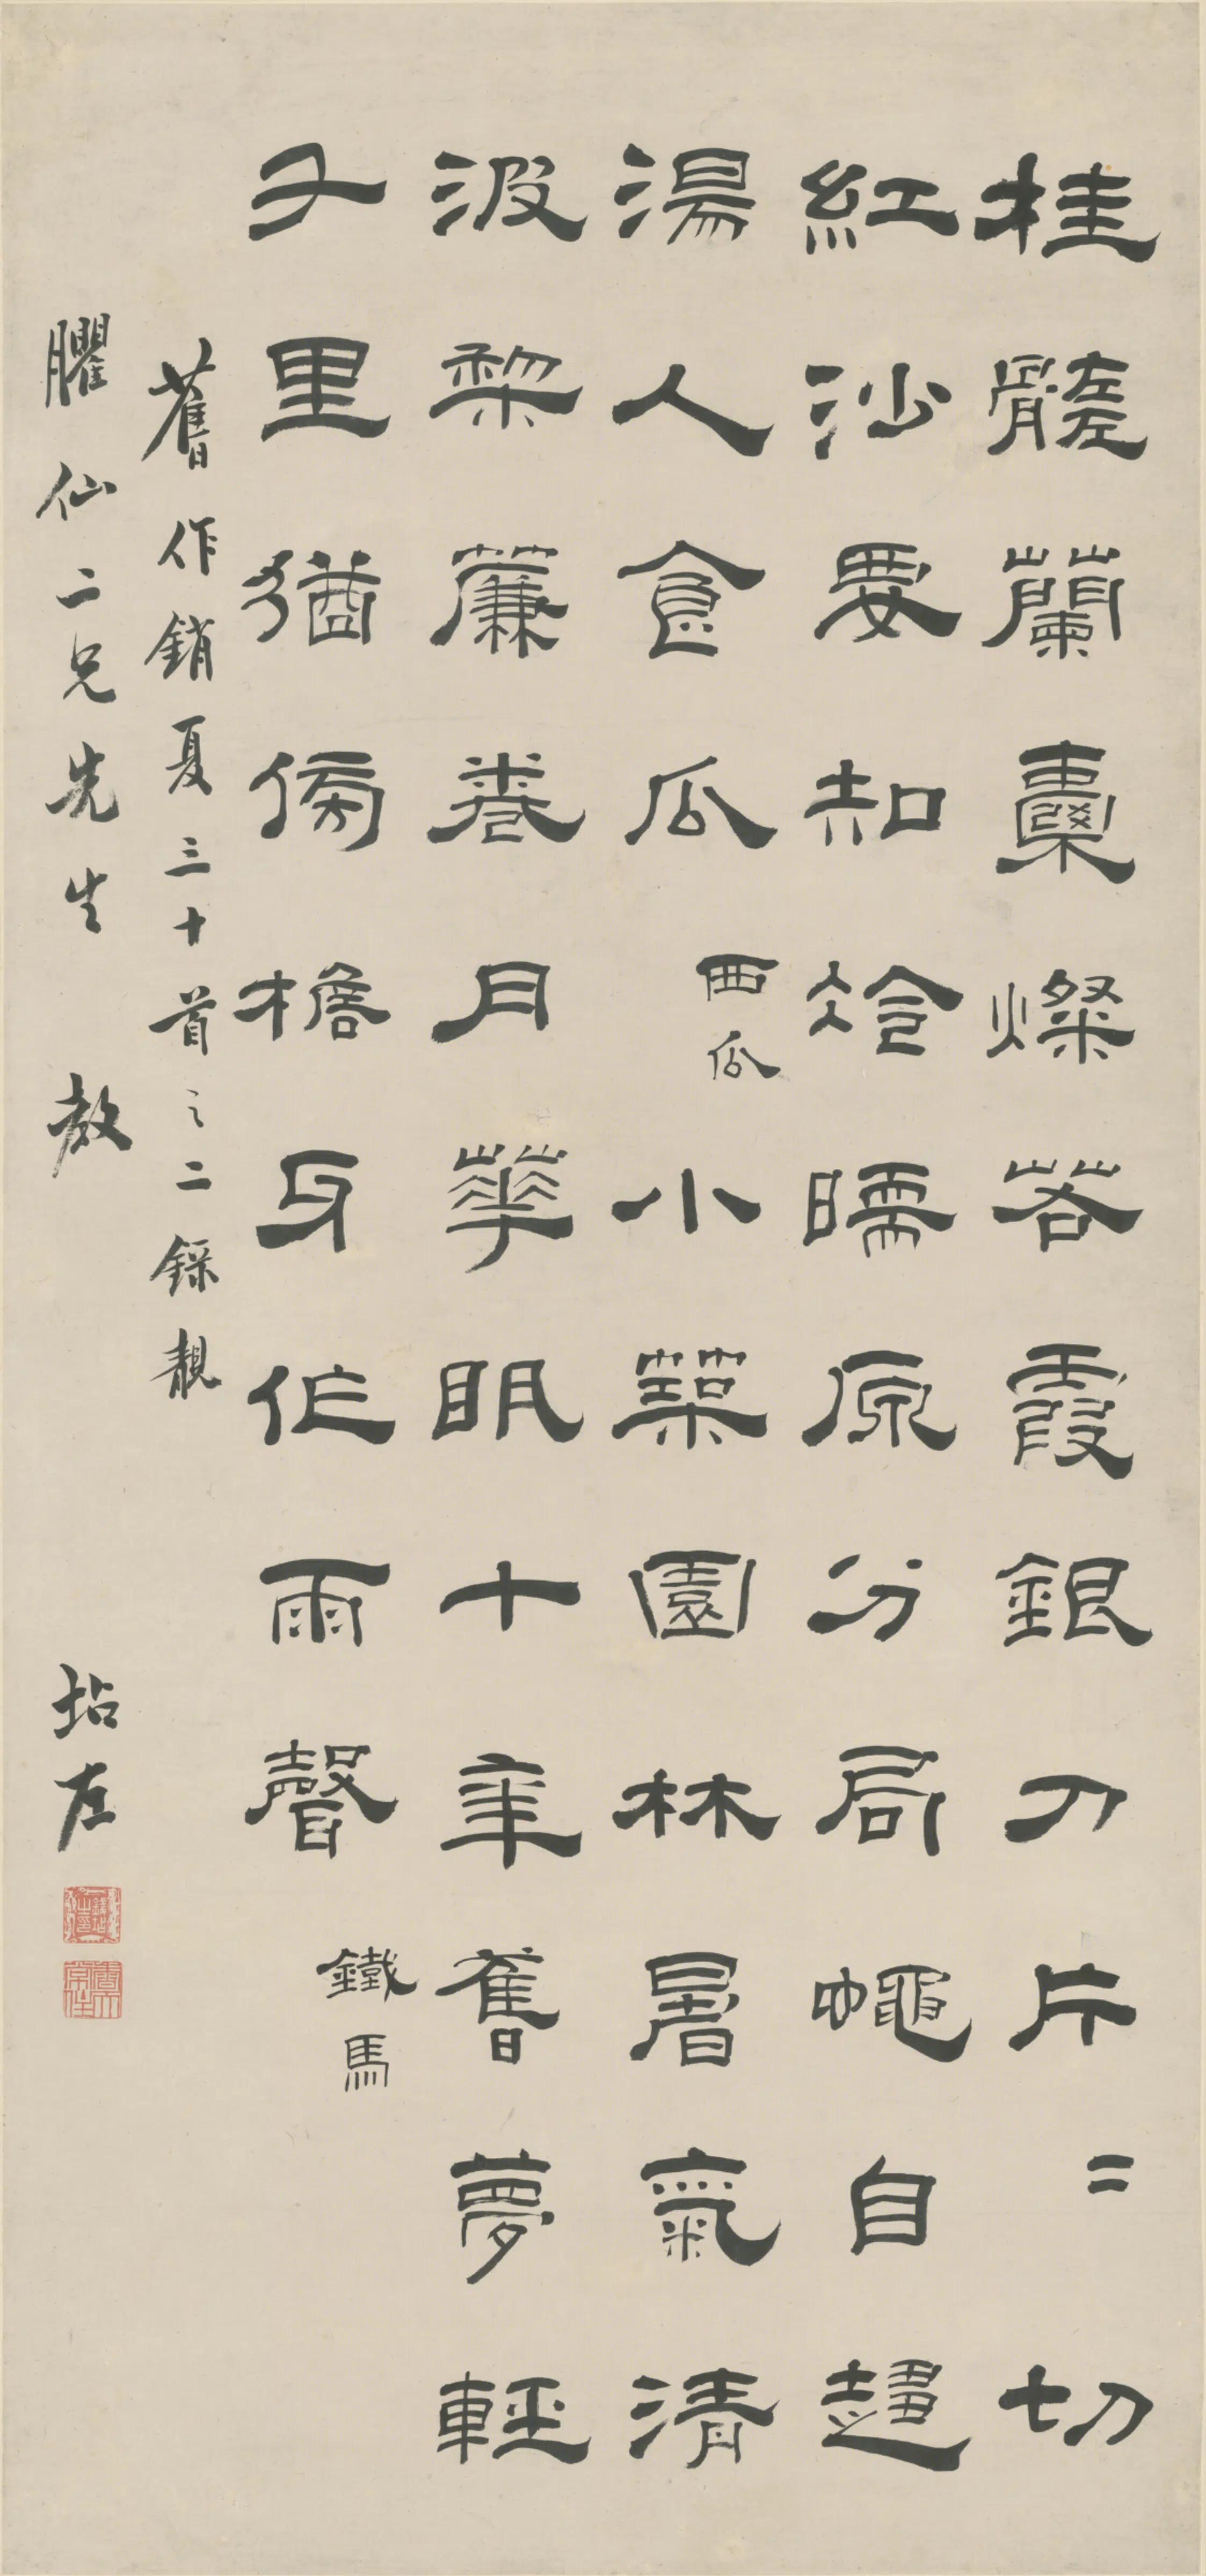 桂髓蘭橐燦若霞銀刀片二切
紅沙要知冷暖原分局蠅自趨
湯人食瓜 西瓜 小築園林暑氣清
波棃簾卷月華明十年舊夢輕
千里猶傍檐牙作雨聲 鐵馬
舊作銷夏三十首之二錄
臞仙二兄先生 教 坫左